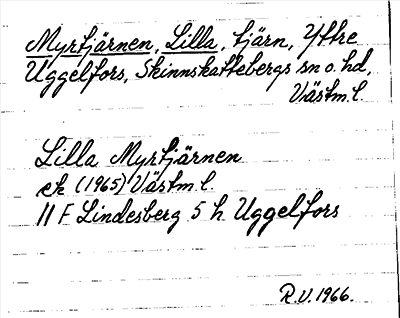 Myrtjärnen, Lilla, tjärn, Yttre
Uggelfors, Skinnskattebergs sn o. hd,
Västm. l.
Lilla Myrtjärnen
ek (1965) Västm. l.
11 F Lindesberg 5 h Uggelfors
R.V. 1966.